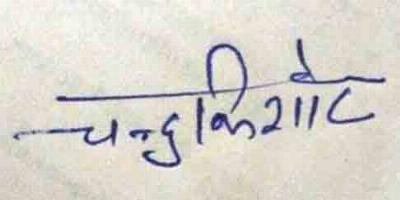 चन्द्रकिशोर